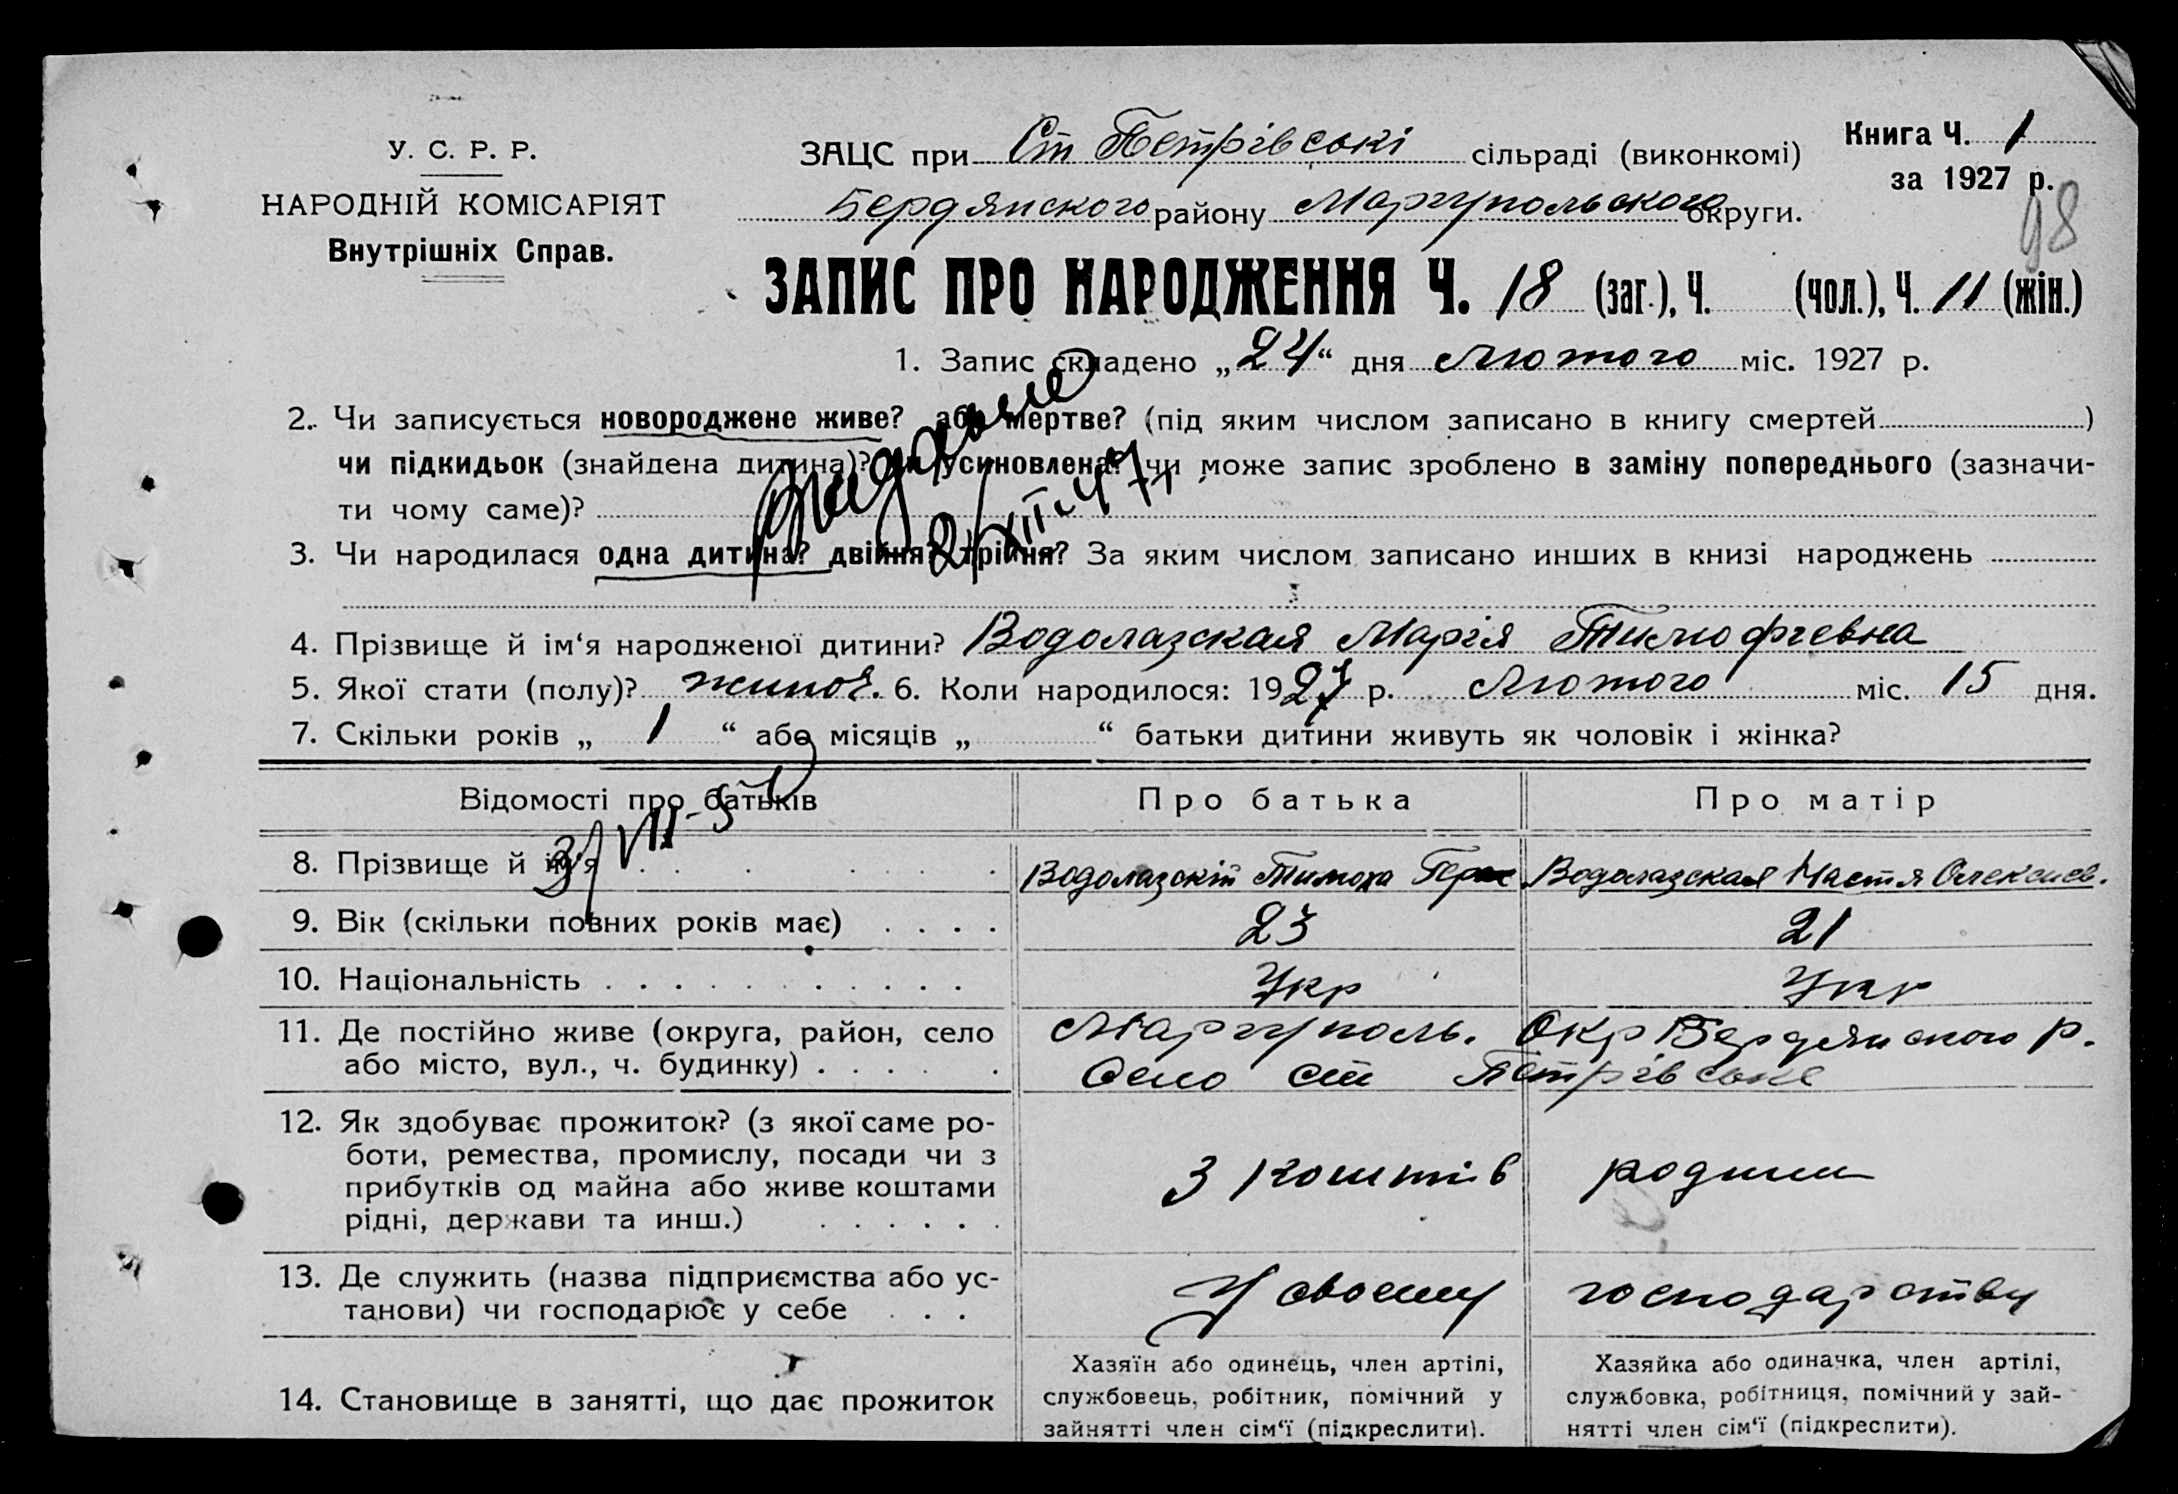 У. С. Р. Р.
НАРОДНІЙ КОМІСАРІЯТ
Внутрішніх Справ.
ЗАЦС при Ст Петрівські сільраді (виконкомі)
Бердянського району Маріупольського округи.
Книга Ч. 1
за 1927 р.
98
ЗАПИС ПРО НАРОДЖЕННЯ Ч. 18 (заг.), Ч. (чол.), Ч. 11 (жін.)
1. Запис складено „24“ дня Лютого міс. 1927 р.
2. Чи записується новороджене живе? або мертве? (під яким числом записано в книгу смертей )
чи підкидьок (знайдена дитина)? чи усиновлена? чи може запис зроблено в заміну попереднього (зазначи-
ти чому саме)?
3. Чи народилася одна дитина? двійня? трійня? За яким числом записано инших в книзі народжень
4. Прізвище й ім‘я народженої дитини? Водолазская Марія Тимофіевна
5. Якої стати (полу)? жиноч. 6. Коли народилося: 1927 р. Лютого міс. 15 дня.
7. Скільки років „ 1 “ або місяців „ “ батьки дитини живуть як чоловік і жінка?
Відомості про батьків Про батька Про матір
8. Прізвище й ім‘я Водолазскій Тимоха Водолазская Настя Олексиев.
9. Вік (скільки повних років має) 23 21
10. Національність Укр Укр
11. Де постійно живе (округа, район, село Маріуполь. Окр Бердянского р.
або місто, вул., ч. будинку) Село ст Петрівське
12. Як здобуває прожиток? (з якої саме ро-
боти, ремества, промислу, посади чи з
прибутків од майна або живе коштами З коштів родини
рідні, держави та инш.)
13. Де служить (назва підприємства або ус- У своему господарству
танови) чи господарює у себе
14. Становище в занятті, що дає прожиток
Хазяїн або одинець, член артілі,
службовець, робітник, помічний у
зайнятті член сім‘ї (підкреслити).
Хазяйка або одиначка, член артілі,
службовка, робітниця, помічний у зай-
нятті член сім‘ї (підкреслити).